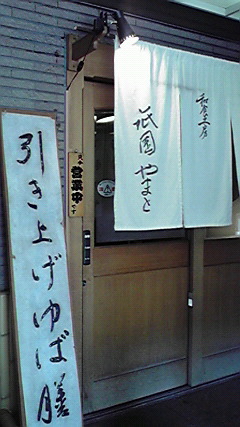 和食工房
祇園 やまと
只今
営業中
です
引き上げゆば膳